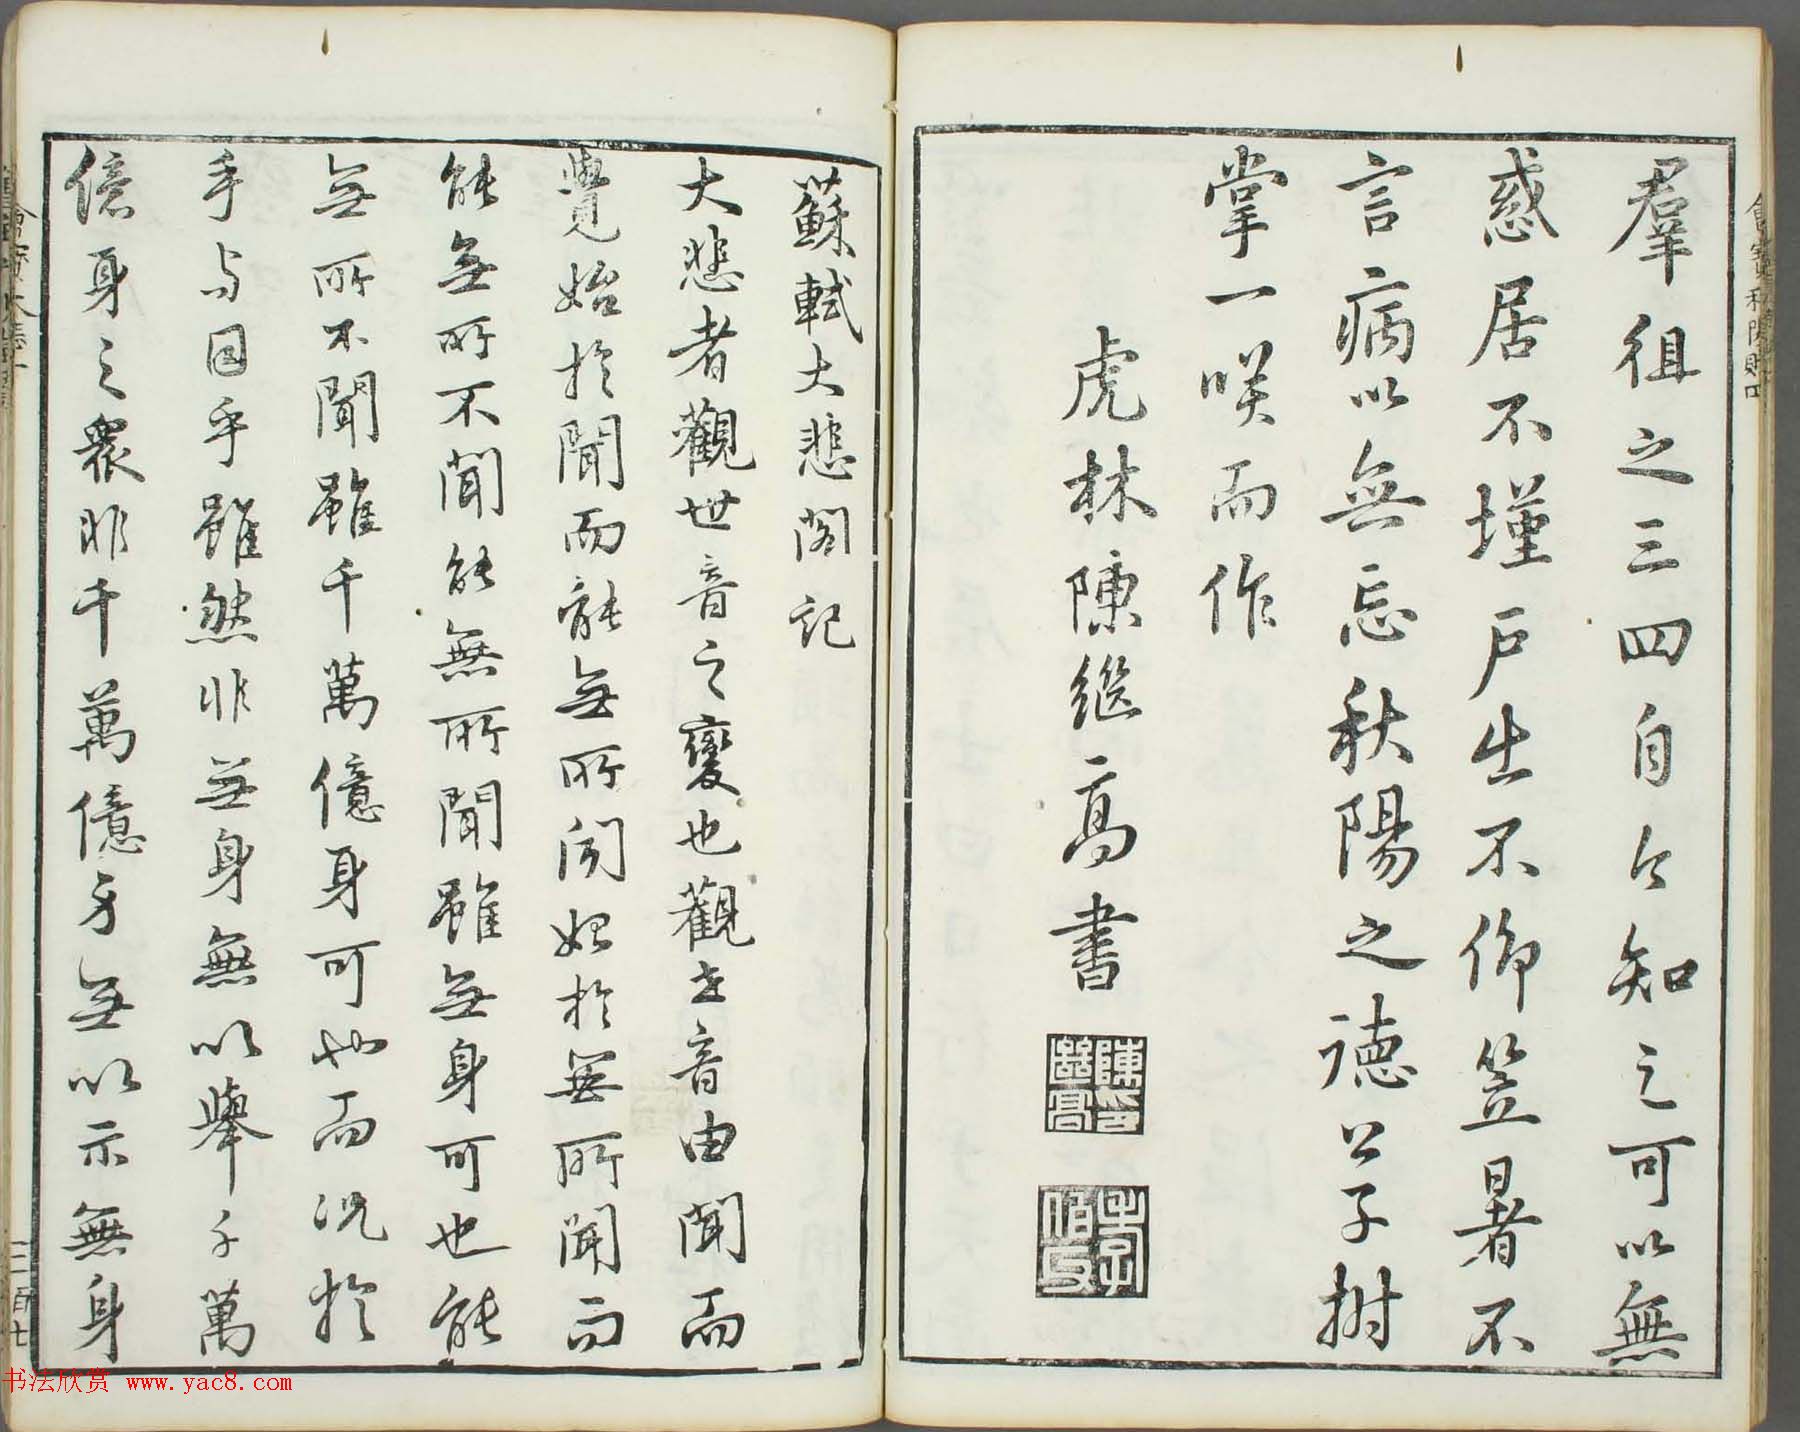 羣徂之三四自今知之可以無
惑居不墐戶出不仰笠暑不
言病以無忘秋陽之德公子拊
掌一咲而作
虎林陳繼高書
陳印繼高
蘇軾大悲閣記
大悲者觀世音之變也觀世音由聞而
覺始於聞而能無所聞始於無所聞而
能無所不聞能無所聞雖無身可也能
無所不聞雖千萬億身可也而況於
手与目乎雖然非無身無以舉千萬
億身之衆非千萬億身無以示無身
书法欣赏 www.yac8.com